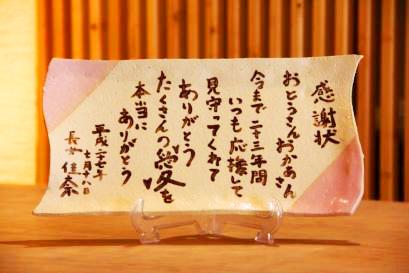 感謝状
おとうさんおかあさん
今まで二十三年間
いつも応援して
見守ってくれて
ありがとう
たくさんの愛を
本当に
ありがとう
平成二十七年
七月十八日
長女 佳奈